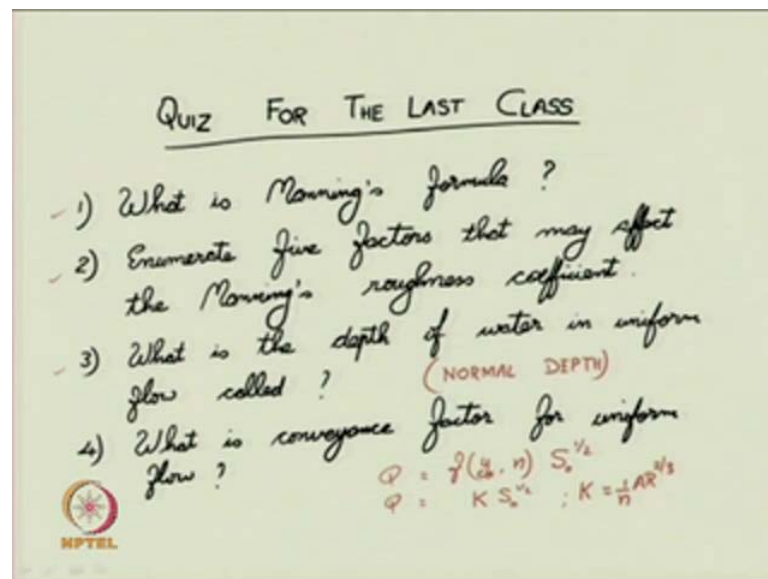 QUIZ FOR THE LAST CLASS
1) What is Manning's formula ?
2) Enumerate five factors that may affect
the Manning's roughness coefficient.
3) What is the depth of water in uniform
flow called ? (NORMAL DEPTH)
4) What is conveyance factor for uniform
flow ?
Q = f( , n) S₀^1/2
Q = K S₀^1/2 ; K = 1/n AR^2/3
NPTEL